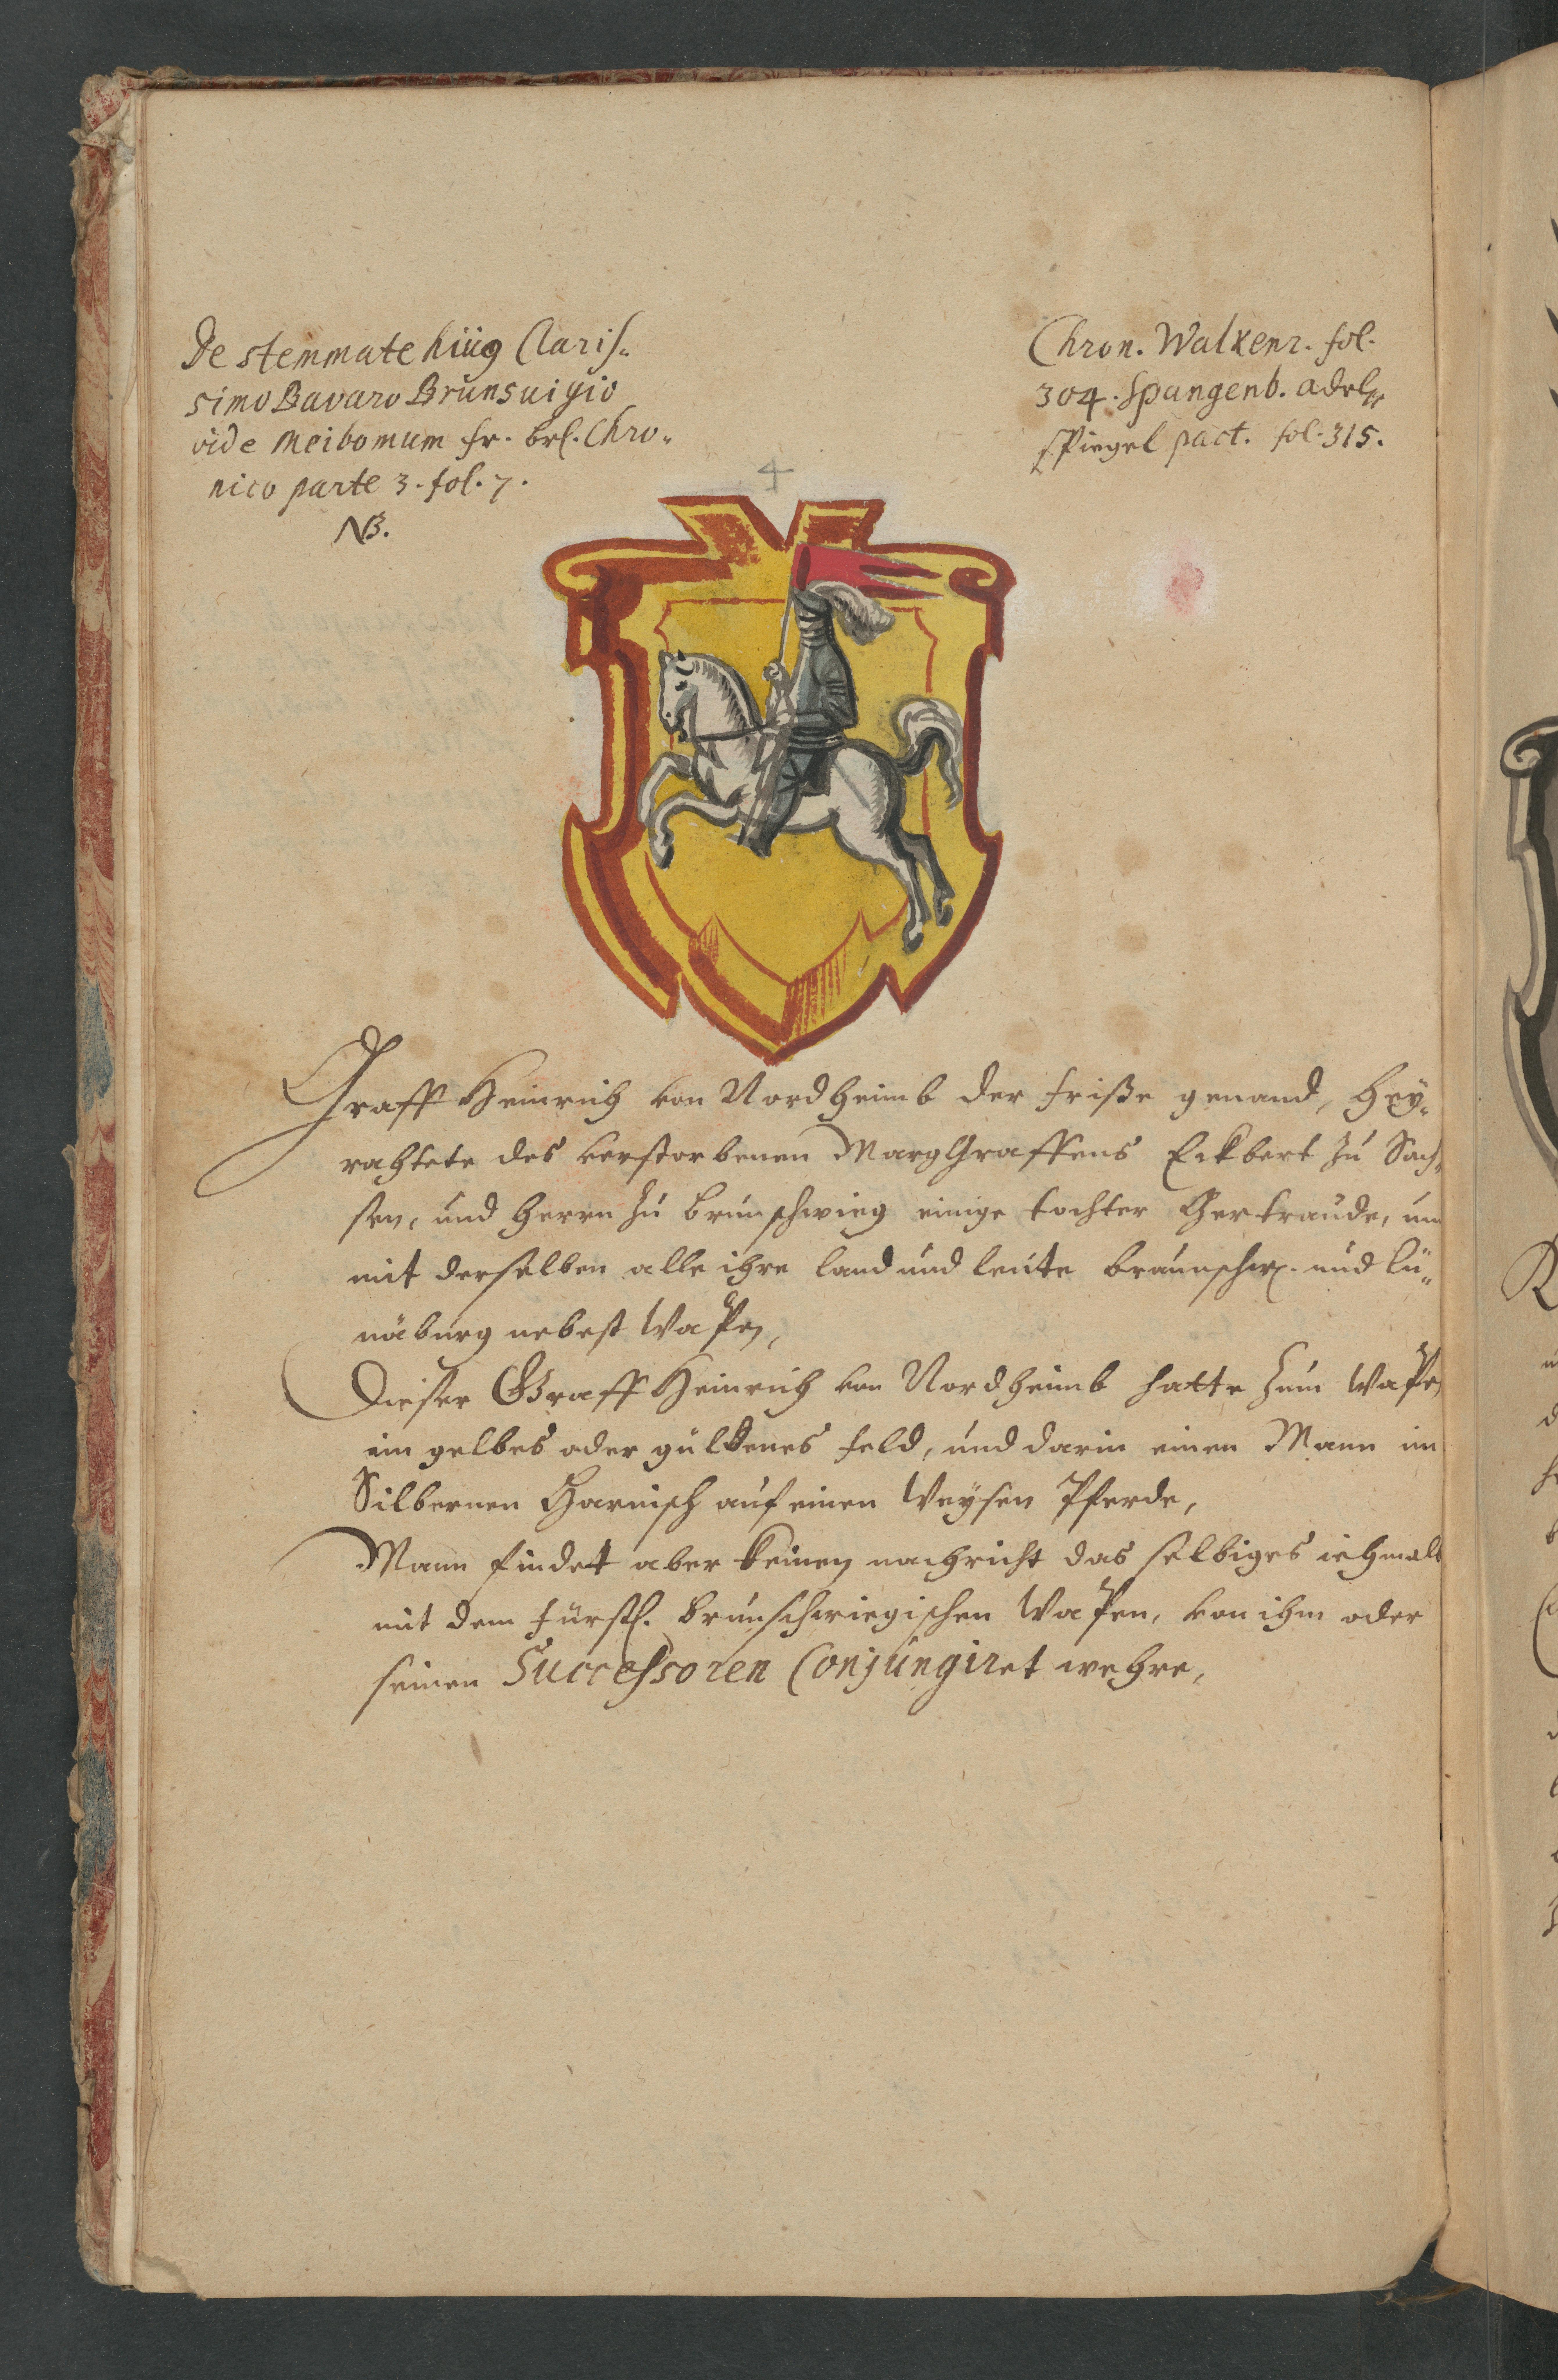 De stemmate hujg Claris⸗
simo Bavaro Brunsuigio
vide Meibomum fr. brl. Chro⸗
nico parte 3. fol. 7.
NB.
Chron. Walkenr. fol.
304. Spangenb. adels
spiegel part. fol. 315.
4
Graff Heinrich von Nordheimb der friße genand, hey⸗
rahtete des verstorbenen MargGraffens Eckbert zu Sach⸗
sen, und Herrn zu Brunschwieg einige tochter Gertraude, un
mit derselben alle ihre land und leute Braunschw. und Lü⸗
näburg nebest Wapen,
Dieser Graff Heinrich von Nordheimb hatte zum Wapen
ein gelbes oder güldenes feld, und darin einen Mann im
Silbernen Harnisch auf einen Weysen Pferde,
Mann findet aber keinen nachricht das selbiges iehmals
mit dem fürstl. Brunschwiegischen Wapen, von ihm oder
seinen Successoren Conjungiret wehre,